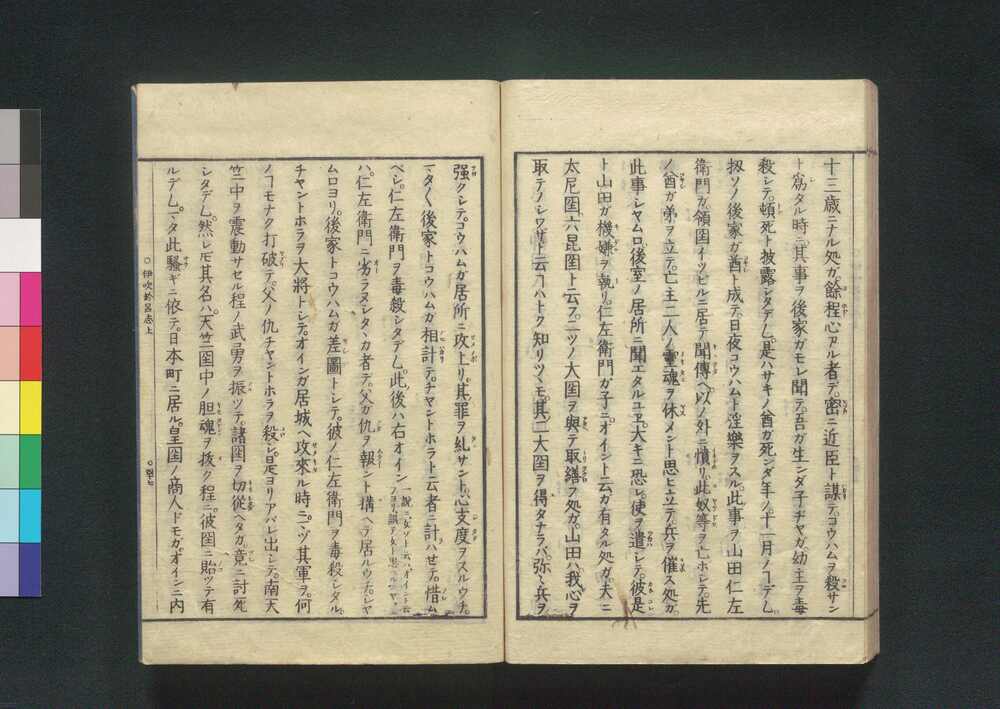 十三歳ニナル処ガ。餘程心アル者デ。密ニ近臣ト謀テ。コウハムヲ殺サン
ト為タル時ニ。其事ヲ後家ガモレ聞テ。吾ガ生ンダ子ヂヤガ。幼主ヲ毒
殺シテ。頓死ト披露シタデム。是ハサキノ酋ガ死ンダ年ノ。十一月ノヿデム。
扨ソノ後家ガ酋ト成テ。日夜コウハムト淫樂ヲスル。此事ヲ山田仁左
衛門ガ領国イツビルニ居テ聞傳ヘ。以ノ外ニ憤リ。此奴等ヲ亡ホシテ。先
ノ酋ガ弟ヲ立テ。亡主二人ノ靈魂ヲ休メント思ヒ立テ。兵ヲ催ス処ガ。
此事シヤムロ後室ノ居所ニ聞エタルユヱ。大キニ恐レ。使ヲ遣シテ。彼是
ト山田ガ機嫌ヲ執リ。仁左衛門ガ子ニ。オイント云ガ有タル処ガ。夫ニ
太尼国。六昆国ト云フ。二ツノ大国ヲ與テ取繕フ処ガ。山田ハ我心ヲ
取テノシワザト云ヿハトク知リツヽモ。其二大国ヲ得タナラバ。弥〻兵ヲ
強クシテ。コウハムガ居所ニ攻上リ。其罪ヲ糺サント。心支度ヲスルウチ。
マタ〱後家トコウハムガ相計テ。チヤントホラト云者ニ計ハセテ。惜ム
ベシ。仁左衛門ヲ毒殺シタデム。此後ハ右オイン
ハ。仁左衛門ニ劣ラヌシタヽカ者デ。父ガ仇ヲ報ント構ヘテ居ルウチ。シヤ
ムロヨリ。後家トコウハムガ差圖トシテ。彼ノ仁左衛門ヲ毒殺シタル。
チヤントホラヲ大將トシテ。オインガ居城ヘ攻來ル時ニ。マヅ其軍ヲ。何
ノヿモナク打破テ。父ノ仇チヤントホラヲ殺シ。是ヨリアバレ出シテ。南天
竺中ヲ震動サセル程ノ武勇ヲ振ツテ。諸国ヲ切從ヘタガ。竟ニ討死
シタデム。然レ𪜈其名ハ。天竺国中ノ胆魂ヲ抜ク程ニ。彼国ニ貽ツテ有
ルデム。マタ此騒ギニ依テ。日本町ニ居ル。皇国ノ商人ドモガ。オインニ内
○伊吹於呂志上